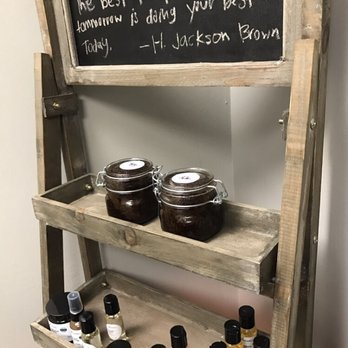 the best p
tomorrow is doing your best
Today. —H. Jackson Brown